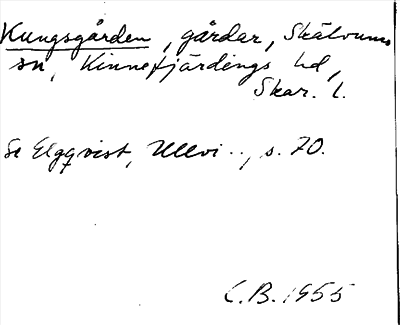 Kungsgården, gårdar, Skälvums
sn, Kinnefjärdings hd,
Skar. l.
Se Elgqvist, Ullvi .., s. 70.
C.B. 1955